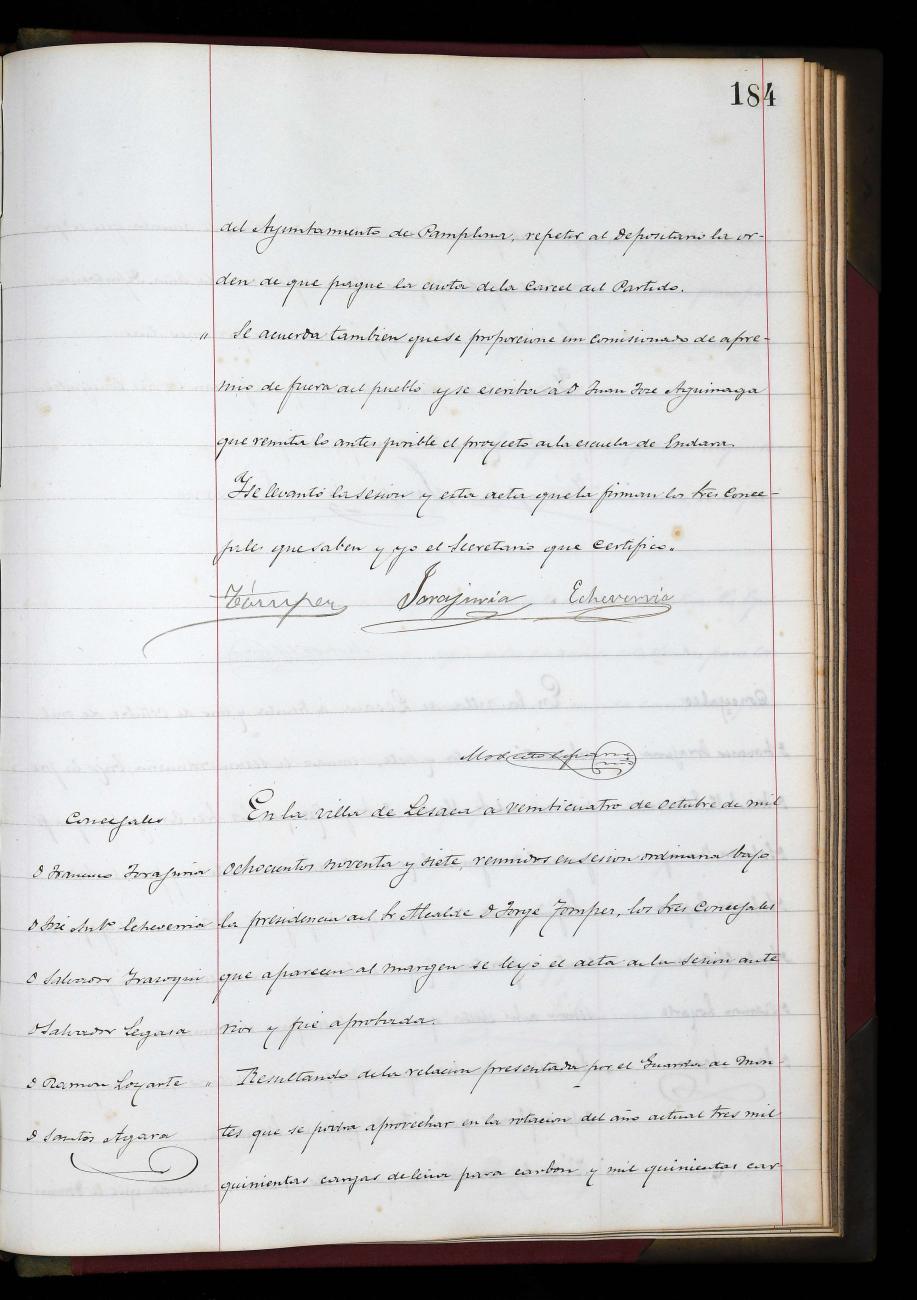 184
del Ayuntamiento de Pamplona, repetir al Depositario la or-
den de que pague la cuota de la Carcel del Partido.
" Se acuerda tambien que se proporcione un comisionado de apre-
mio de fuera del pueblo y se escriba á D Juan José Aguinaga
que remita lo antes posible el proyecto de la escuela de Endara.
Y se levantó la sesion y esta acta que la firman los tres Conce-
jales que saben y yo el Secretario que Certifico.
Tómper Irazuria Echeverria
Modesto
Concejales
D Francisco Irazuria
D José Antº Echeverria
D Salvador Irazoqui
D Salvador Legasa
D Ramon Loyarte
D Santos Agara
En la villa de Lesaca a veinticuatro de octubre de mil
ochocientos noventa y siete, reunidos en sesion ordinaria bajo
la presidencia del Sr Alcalde D Jorge Tomper, los tres Concejales
que aparecen al margen se leyó el acta de la sesion ante
rior y fué aprobada.
" Resultando de la relacion presentada por el Guarda de Mon
tes que se podra aprovechar en la rotacion del año actual tres mil
quinientas cargas de leña para carbon y mil quinientas car-